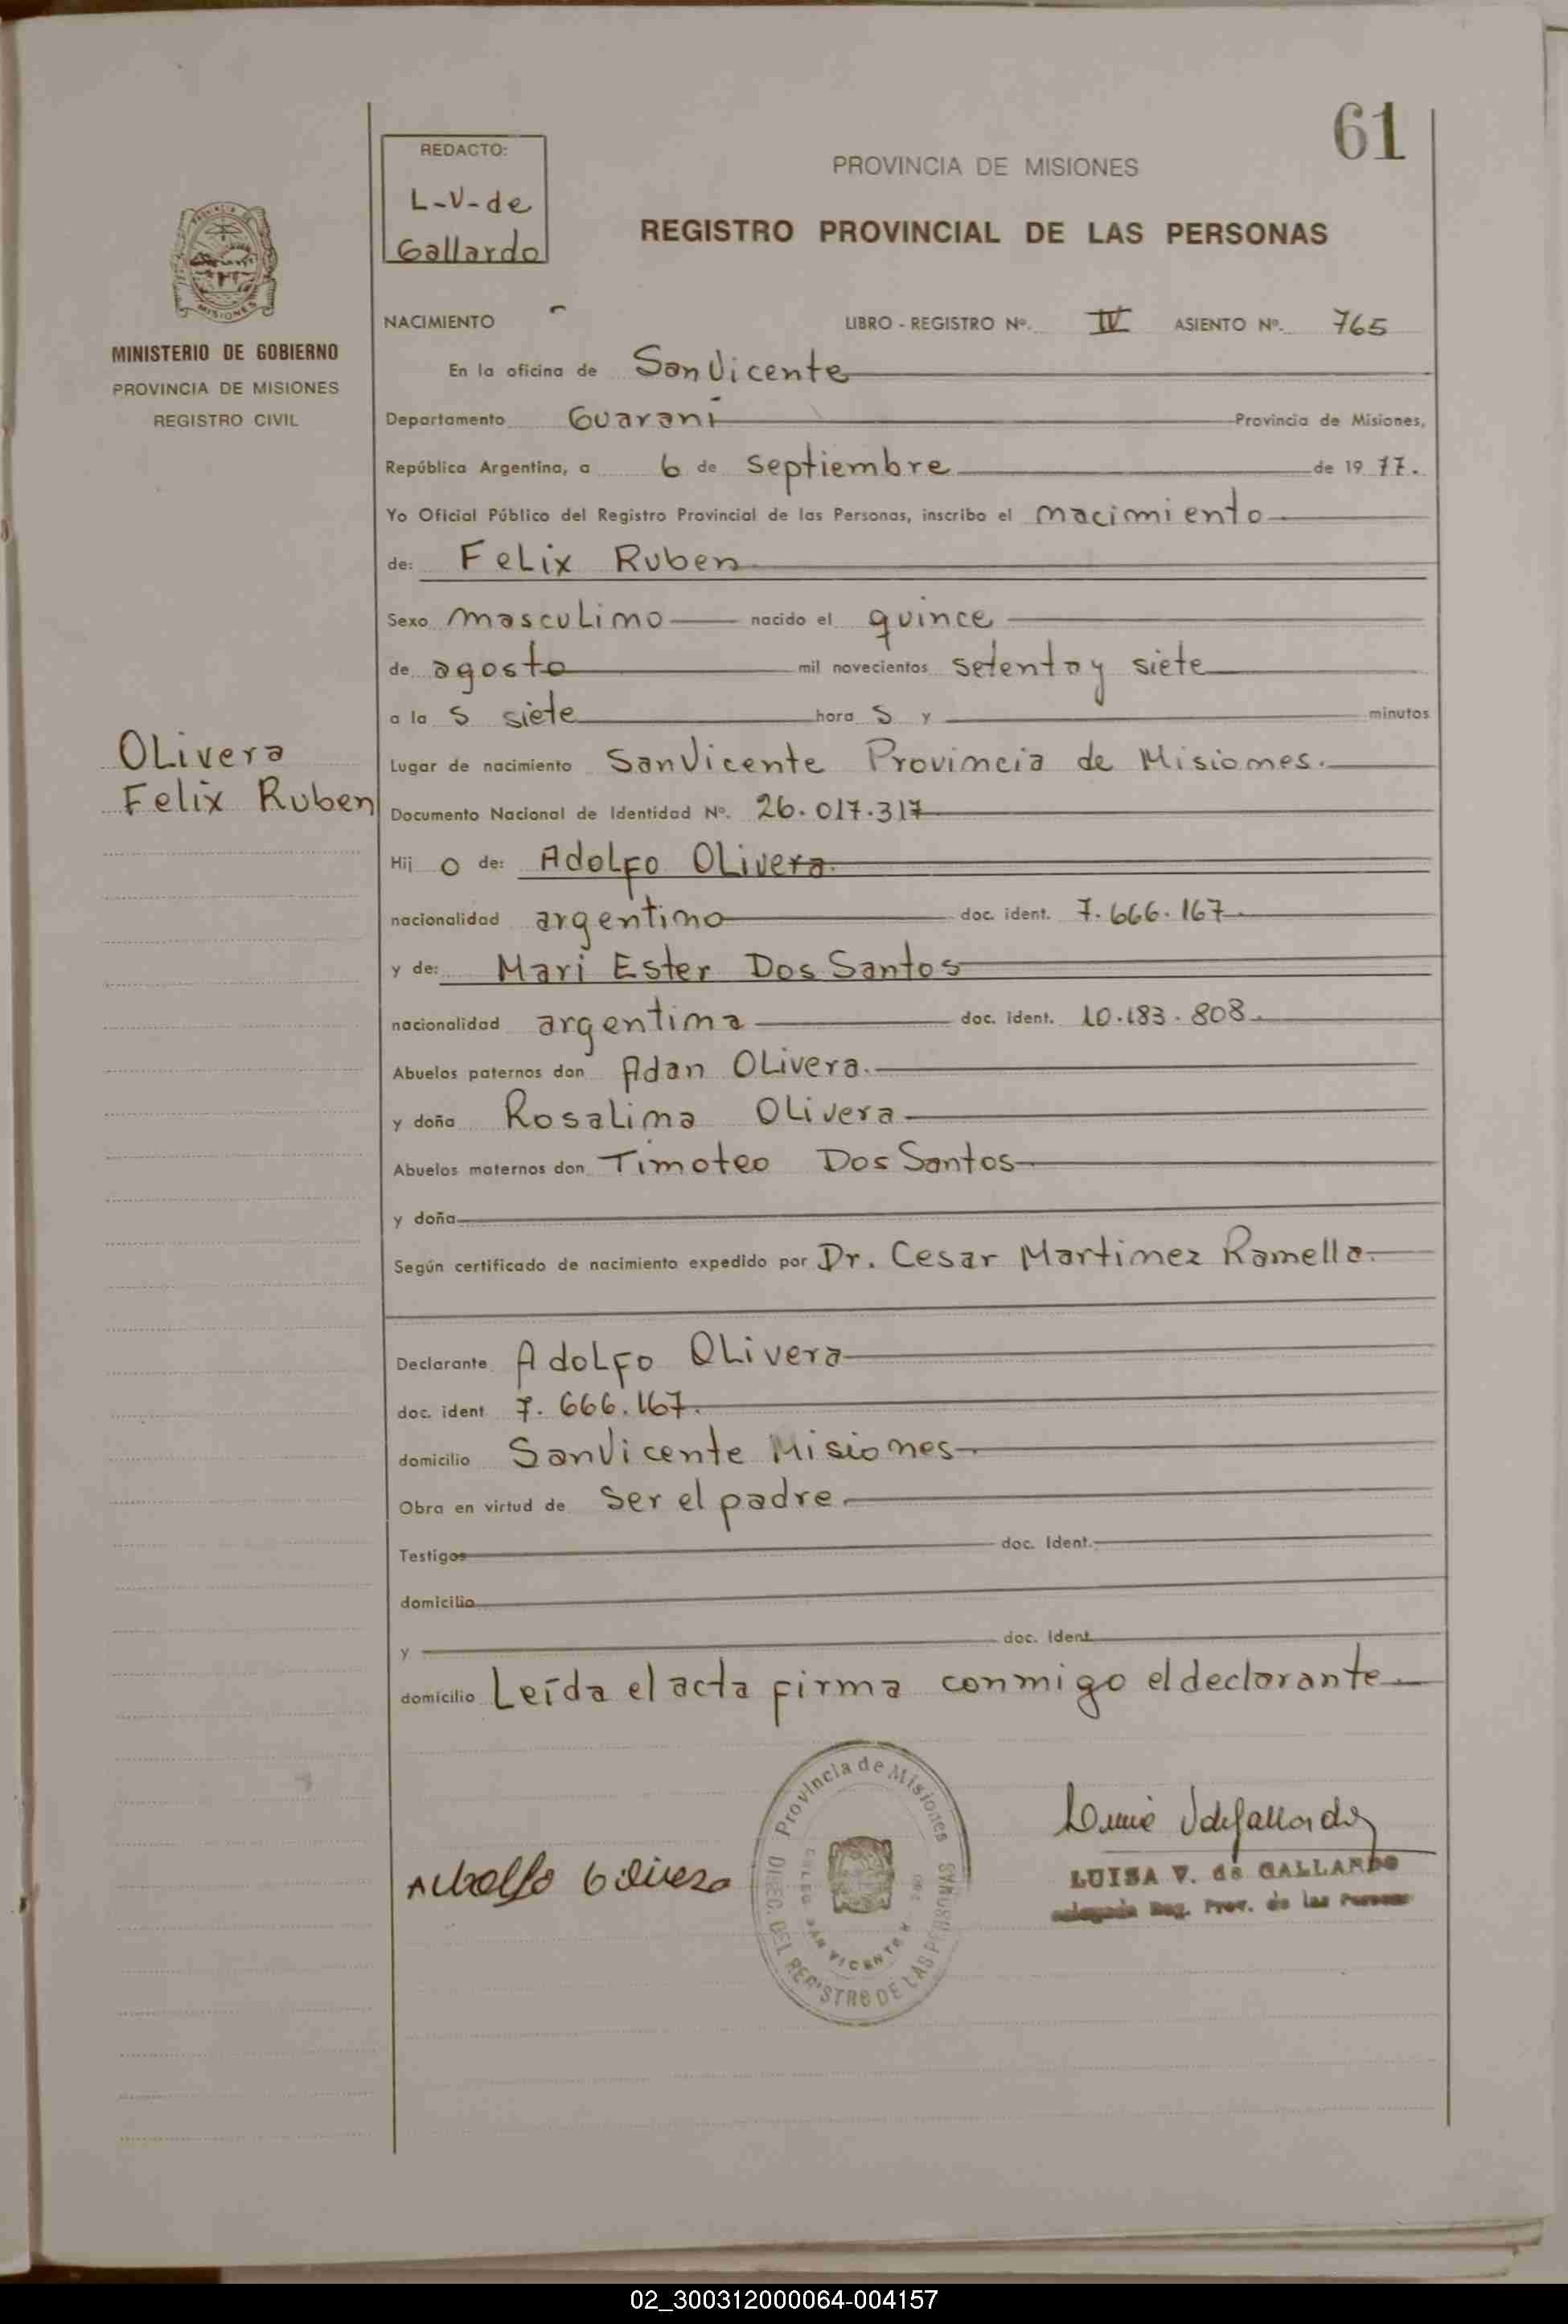 61
REDACTO:
L-V-de
Gallardo
PROVINCIA DE MISIONES
REGISTRO PROVINCIAL DE LAS PERSONAS
MISIONES
MINISTERIO DE GOBIERNO
PROVINCIA DE MISIONES
REGISTRO CIVIL
NACIMIENTO LIBRO - REGISTRO Nº. IV ASIENTO Nº. 765
En la oficina de San Vicente
Departamento Guaraní Provincia de Misiones,
República Argentina, a 6 de septiembre de 19 77.
Yo Oficial Público del Registro Provincial de las Personas, inscribo el nacimiento
de: Felix Ruben
Sexo masculino nacido el quince
de agosto mil novecientos setenta y siete
a la s siete hora s y minutos
Olivera
Felix Ruben
Lugar de nacimiento San Vicente Provincia de Misiones.
Documento Nacional de Identidad Nº. 26.017.317
Hij o de: Adolfo Olivera
nacionalidad argentino doc. ident. 7.666.167
y de: Mari Ester Dos Santos
nacionalidad argentina doc. ident. 10.183.808
Abuelos paternos don Adan Olivera.
y doña Rosalina Olivera
Abuelos maternos don Timoteo Dos Santos
y doña
Según certificado de nacimiento expedido por Dr. Cesar Martinez Ramella
Declarante Adolfo Olivera
doc. ident 7.666.167.
domicilio San Vicente Misiones
Obra en virtud de Ser el padre
Testigos doc. Ident.
domicilio
y doc. Ident
domicilio Leída el acta firma conmigo el declarante
Provincia de Misiones
DIREC. DEL REGISTRO DE LAS PERSONAS
SAN VICENTE
LUISA V. de GALLARDO
Reg. Prov. de las Personas
02_300312000064-004157